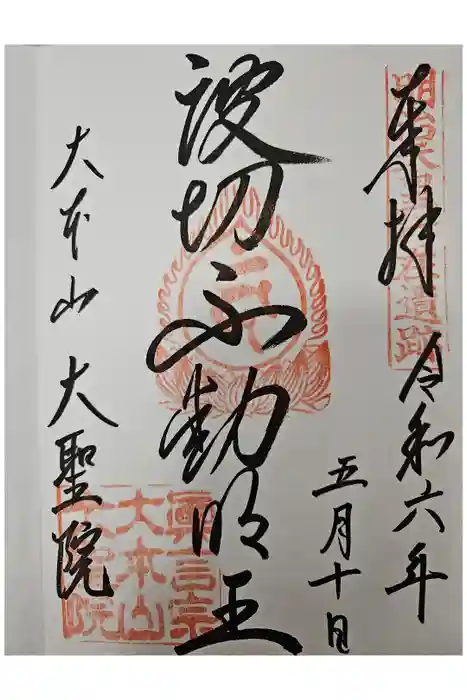 奉拝
令和六年
五月十日
波切不動明王
大本山 大聖院
真言宗
大本山